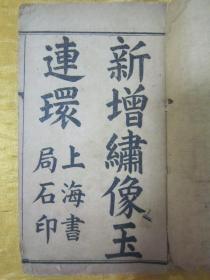 新增繡像玉
連環
上海書
局石印